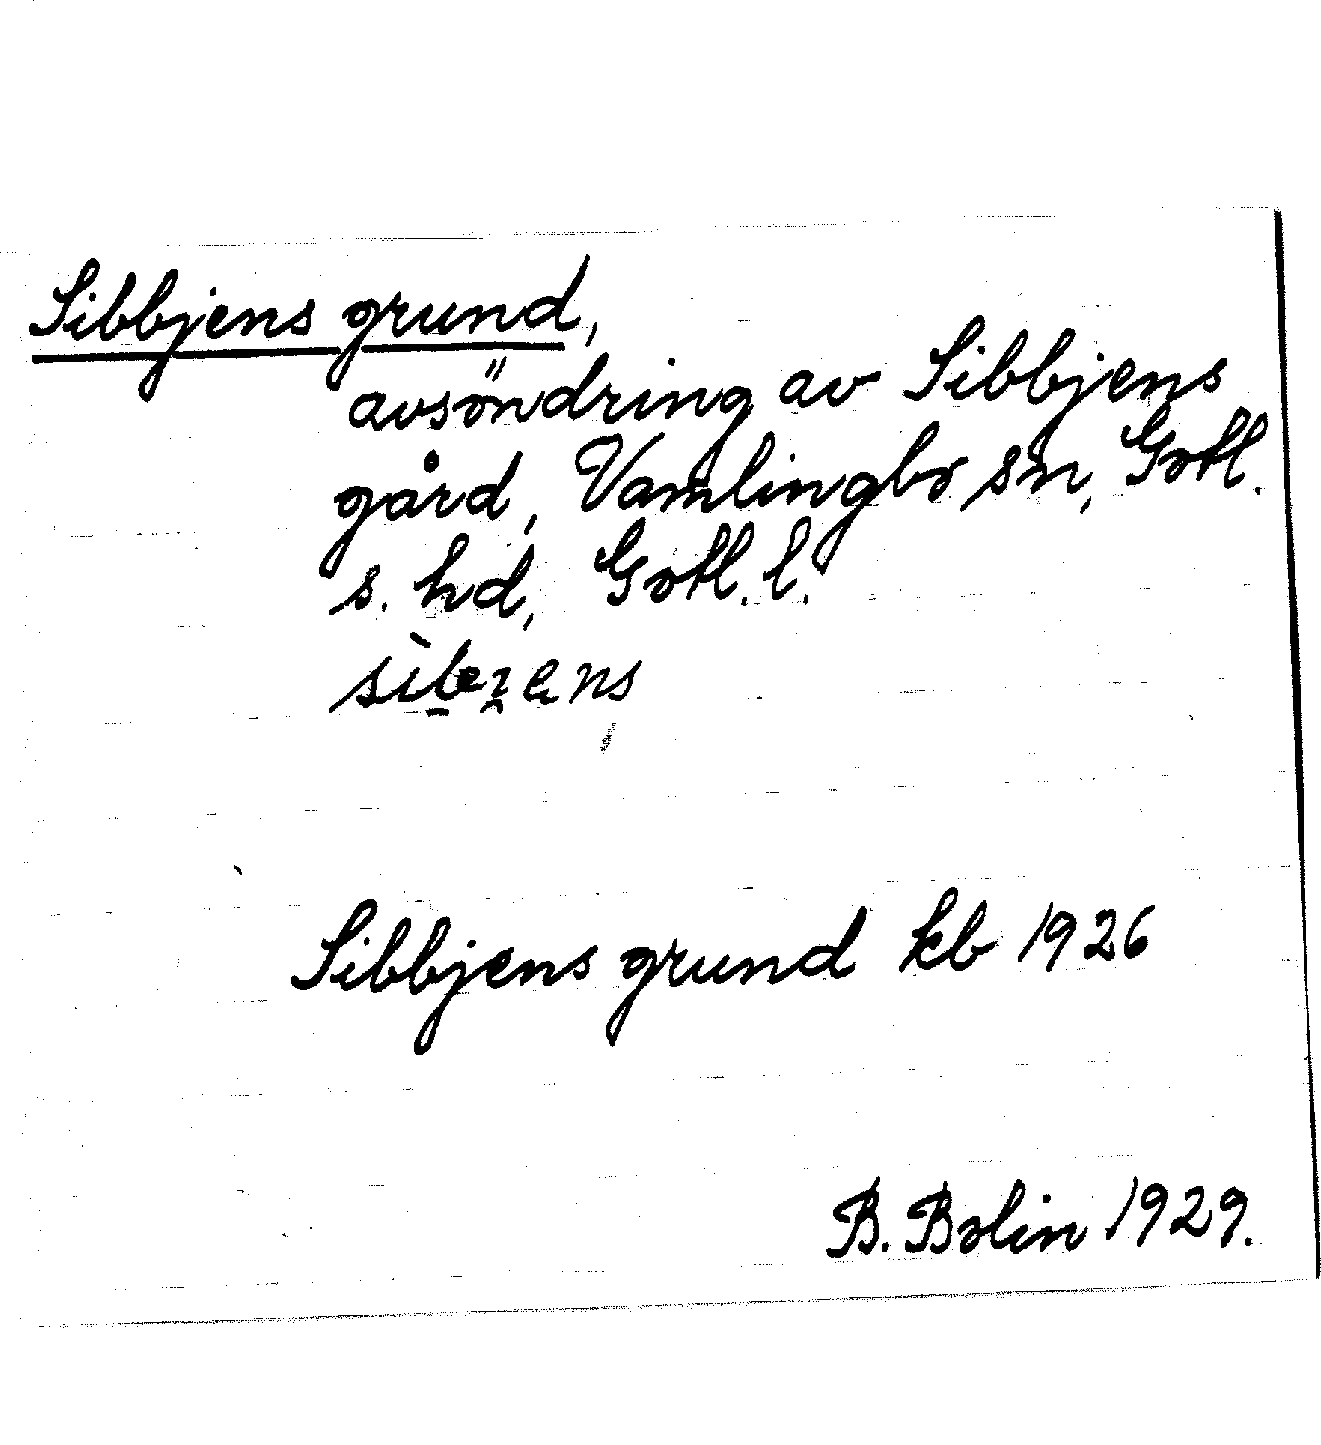 Sibbjens grund,
avsöndring av Sibbjens
gård, Vamlingbo sn, Gotl.
s. hd, Gotl. l.
Sibbjens grund kb 1926
B. Bolin 1929.